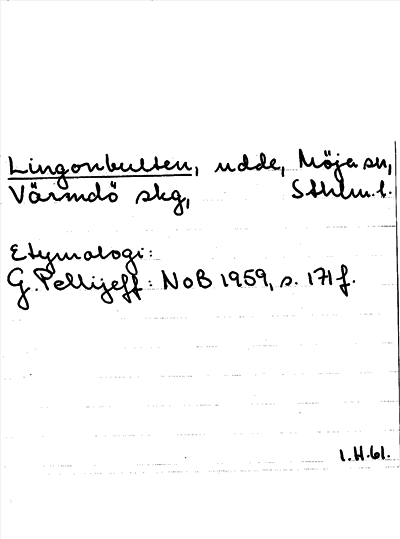 Lingonbulten, udde, Möja sn,
Värmdö skg, Sthlm.l.
Etymologi:
G. Pellijeff: NoB 1959, s. 171 f.
I.H.61.